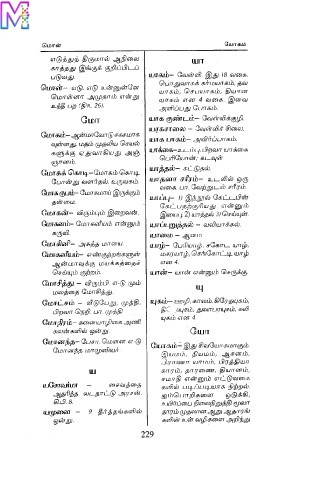 மோன்
யோகம்
எடுத்துத் திருமால் ஆநிலை
காத்தது இங்குக் குறிப்பிடப்
படுவது.
மோன்– எடு. எடு உன்னுள்ளே
மோனான அமுதாம் என்று
உந்தீ பற (திஉ 26).
மோ
மோகம்–ஆன்மாவோடு சகசமாக
வுள்ளது. மதம் முதலிய செயல்
களுக்கு ஏதுவாகியது. அஞ்
ஞானம்.
மோகக் கொடி–மோகம் கொடி
போன்று வளர்தல். உருவகம்.
மோகரூபம்–மோகமாய் இருக்கும்
தன்மை.
மோகன்– விரும்பும் இறைவன்.
மோகனம்– மோகனியம் என்னும்
கருவி.
மோகினி– அசுத்த மாயை.
மோகனீயம்– எண்குற்றங்களுள்
ஆன்மாவுக்கு மயக்கத்தைச்
செய்யும் குற்றம்.
மோசித்து – விரும்பி. எ-டு மும்
மலத்தை மோசித்து.
மோட்சம் – வீடுபேறு, முத்தி.
பிறவா நெறி. பா. முத்தி
மோதிரம்– கலையாழிகை அணி
கலன்களில் ஒன்று.
மோனந்த– பேசா. மௌன எ-டு
மோனந்த மாமுனிவர்.
ய
யசோவர்மா – சைவத்தை
ஆதரித்த வடநாட்டு அரசன்.
கி.பி. 8.
யமுனை – 9 தீர்த்தங்களில்
ஒன்று.
யா
யாகம்– வேள்வி. இது 18 வகை.
பொதுவாகக் கர்மயாகம், தவ
யாகம், செபயாகம், தியான
யாகம் என 4 வகை. இவை
அளிப்பது போகம்.
யாக குண்டம்– வேள்விக்குழி.
யாகசாலை – வேள்விச் சிலை.
யாக யாகம்– அவிர்ப்பாகம்.
யாக்கை–உடம்பு. பிறவா யாக்கை
பெரியோன்; கடவுள்
யாத்தல்– கட்டுதல்.
யாதனா சரீரம்– உடலில் ஒரு
வகை. பா. வேற்றுடம் சரீரம்.
யாப்பு– 1) இந்நூல் கேட்டபின்
கேட்பதற்குரியது என்னும்
இயைபு. 2) யாத்தல் 3) செய்யுள்.
யாப்புறுத்தல் – வலியாக்கல்.
யாமை – ஆமை
யாழ்– பேரியாழ், சகோட யாழ்,
மகரயாழ், செங்கோட்டி யாழ்
என 4.
யான்– யான் என்னும் செருக்கு.
யு
யுகம்– ஊழி, காலம். கிரேதயுகம்,
யுகம், துவாபரயுகம், கலி
யுகம் என 4.
யோ
யோகம்– இது சிவயோகமாகும்.
இயமம், நியமம், ஆசனம்,
பிராணா யாமம், பிரத்தியா
காரம், தாரணை, தியானம்,
சமாதி என்னும் எட்டுவகை
களில் படிப்படியாக நிற்றல்.
ஐம்பொறிகளை ஒடுக்கி,
உயிர்ப்பை நிலைநிறுத்தி மூலா
தாரம் முதலான ஆறு ஆதாரங்
களின் உள் வழிகளை அறிந்து
229